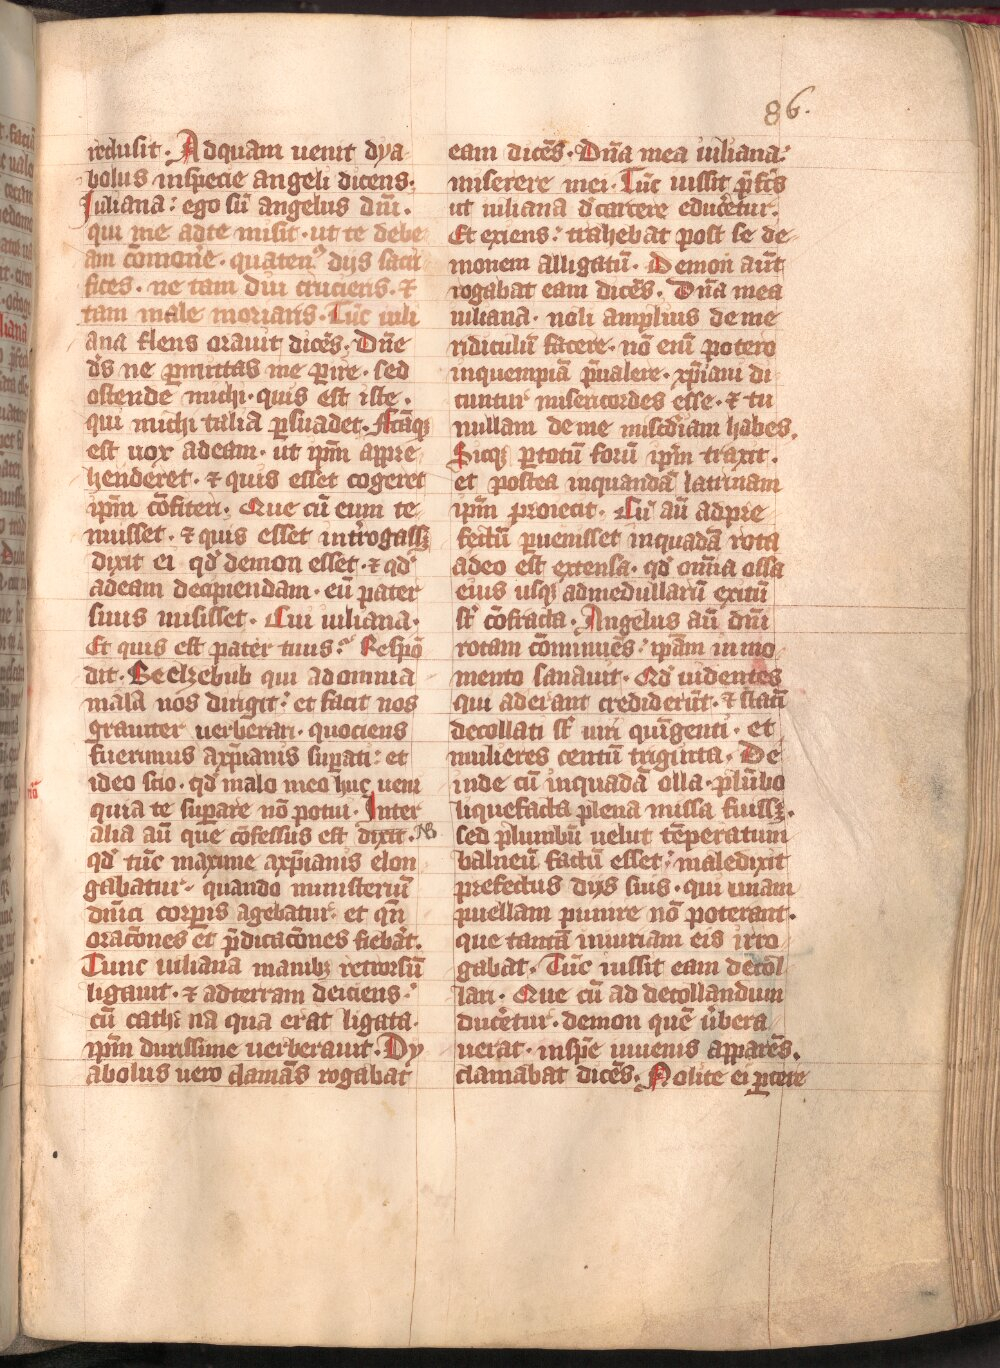 86.
reclusit. Adquam uenit dya
bolus inspecie angeli dicens.
Juliana: ego sū angelus dnī.
qui me adte misit. ut te debe
am cōmonē'e. quaten' dijs sacri
fices. ne tam diu crucieris. ⁊
tam male moriaris. Tūc iuli
ana flens orauit dicēs. Dn̄e
d's ne ꝑmittas me ꝑire. sed
ostende michi. quis est iste.
qui michi talia ꝑsuadet. Fcāqꝫ
est uox adeam. ut ip̄m appre
henderet. ⁊ quis esset cogeret
ip̄m cōfiteri. Que cū eum te
nuisset. ⁊ quis esset int'rogassꝫ
dixit ei qd' demon esset. ⁊ qd'
adeam decipiendam. eū pater
suus misisset. Cui iuliana.
Et quis est pater tuus? Respō
dit. Beelzebub qui adomnia
mala nos dirigit: et facit nos
grauiter uerberari. quociens
fuerimus axp̄ianis suꝑati: et
ideo scio. qd' malo meo huc ueni
quia te suꝑare nō potui. Inter
alia aū que cōfessus est dixit. NB
qd' tūc maxime axp̄ianis elon
gabatur. quando ministeriū
dn̄ici corꝑis agebatur. et qn̄
orac̄ones et p̄dicac̄ones fiebāt.
Tunc iuliana manibꝫ retrorsū
ligauit. ⁊ adterram deiciens:
cū cathe na qua erat ligata.
ip̄m durissime uerberauit. Dy
abolus uero clamās rogabat
eam dicēs. Dn̄a mea iuliana:
miserere mei. Tūc iussit p̄fc̄s
ut iuliana d'carcere educ̄etur.
Et exiens: trahebat post se de
monem alligatū. Demon aūt
rogabat eam dicēs. Dn̄a mea
iuliana. noli amplius deme
ridiculū facere. nō enī potero
inquempiā p̄ualere. xp̄iani di
cuntur misericordes esse. ⁊ tu
nullam deme mis'cdiam habes.
Sicqꝫ ꝑtotū forū ip̄m traxit.
et postea inquandā latrinam
ip̄m proiecit. Cū aū adpre
fectū ꝑuenisset inquadā rota
adeo est extensa. qd' om̄ia ossa
eius usqꝫ admedullarū exitū
st' cōfracta. Angelus aū dnī
rotam cōminuēs: ip̄am inmo
mento sanauit. Qd' uidentes
qui aderant crediderūt. ⁊ statī
decollati st' uiri quīgenti. et
mulieres centū triginta. De
inde cū inquadā olla. plūbo
liquefacta plena missa fuissꝫ.
sed plumbū uelut tēperatum
balneū factū esset: maledixit
prefectus dijs suis. qui unam
puellam punire nō poterant.
que tantā iniuriam eis irro
gabat. Tūc iussit eam decol
lari. Que cū ad decollandum
ducētur. demon quē ūbera
uerat. insp̄e iuuenis apparēs.
clamabat dicēs. Nolite ei ꝑcere